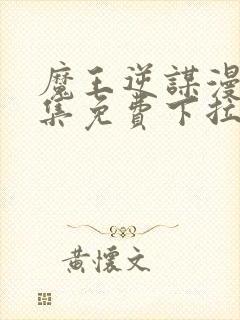 魔王逆謀漫
集免費下拉
黃懷文